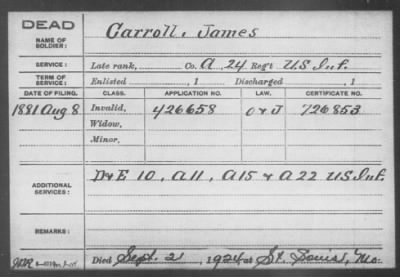 DEAD
NAME OF SOLDIER: Carroll, James
SERVICE: Late rank, Co. A, 24 Regt U S Inf.
TERM OF SERVICE: Enlisted , 1 Discharged , 1
DATE OF FILING. CLASS. APPLICATION NO. LAW. CERTIFICATE NO.
1881 Aug 8 Invalid, 426658 726853
Widow,
Minor,
ADDITIONAL SERVICES: D & E 10, A 11, A 15 & A 22 U S Inf.
Died Sept. 2 , 1924 at St. Louis, Mo.